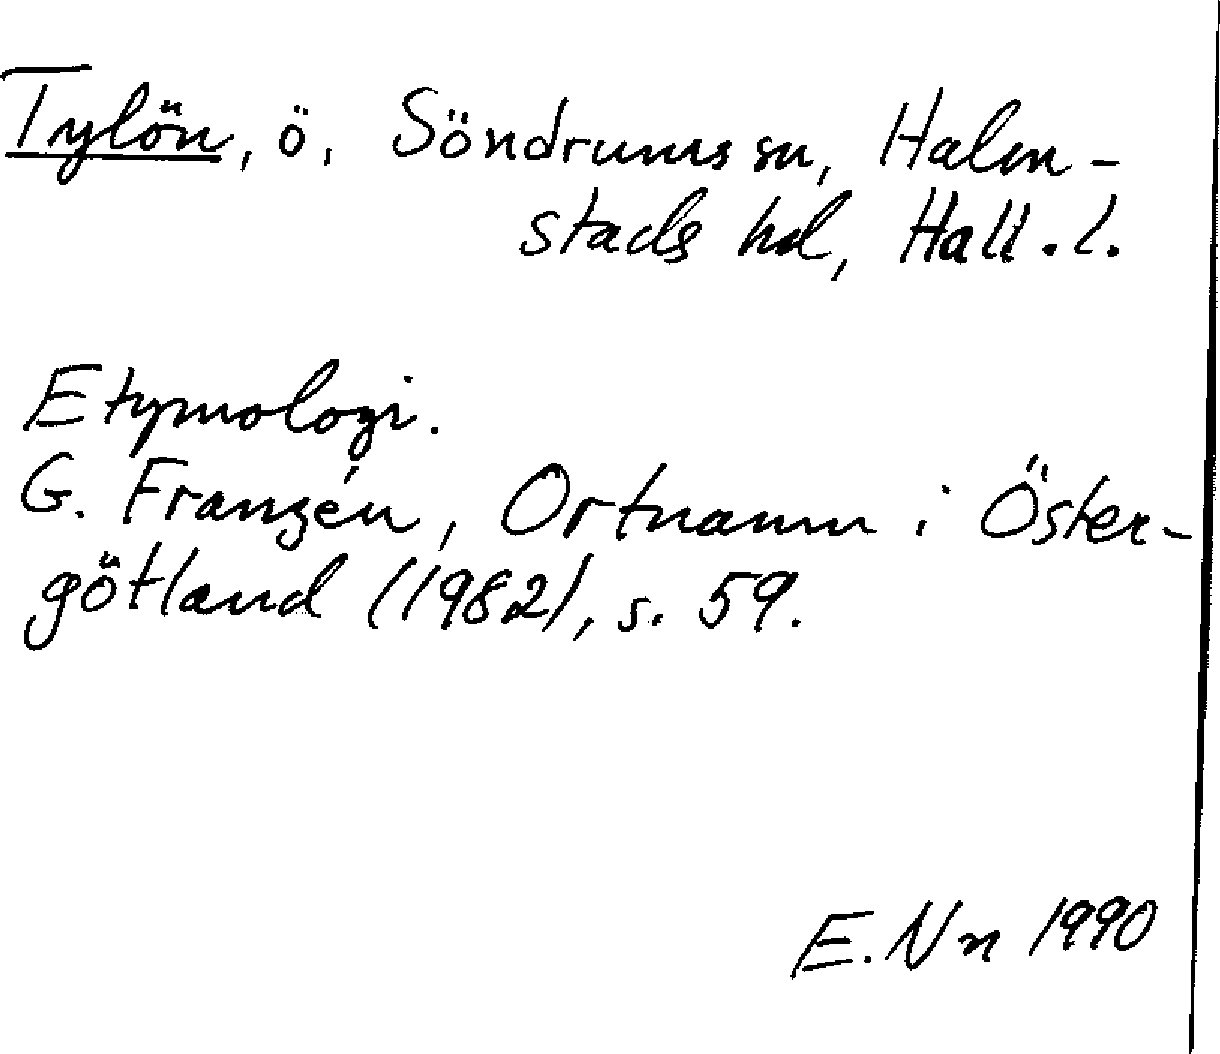 Tylön, ö, Söndrums sn, Halm-
stads hd, Hall. l.
Etymologi.
G. Franzén, Ortnamn i Öster-
götland (1982), s. 59.
E. Nn 1990